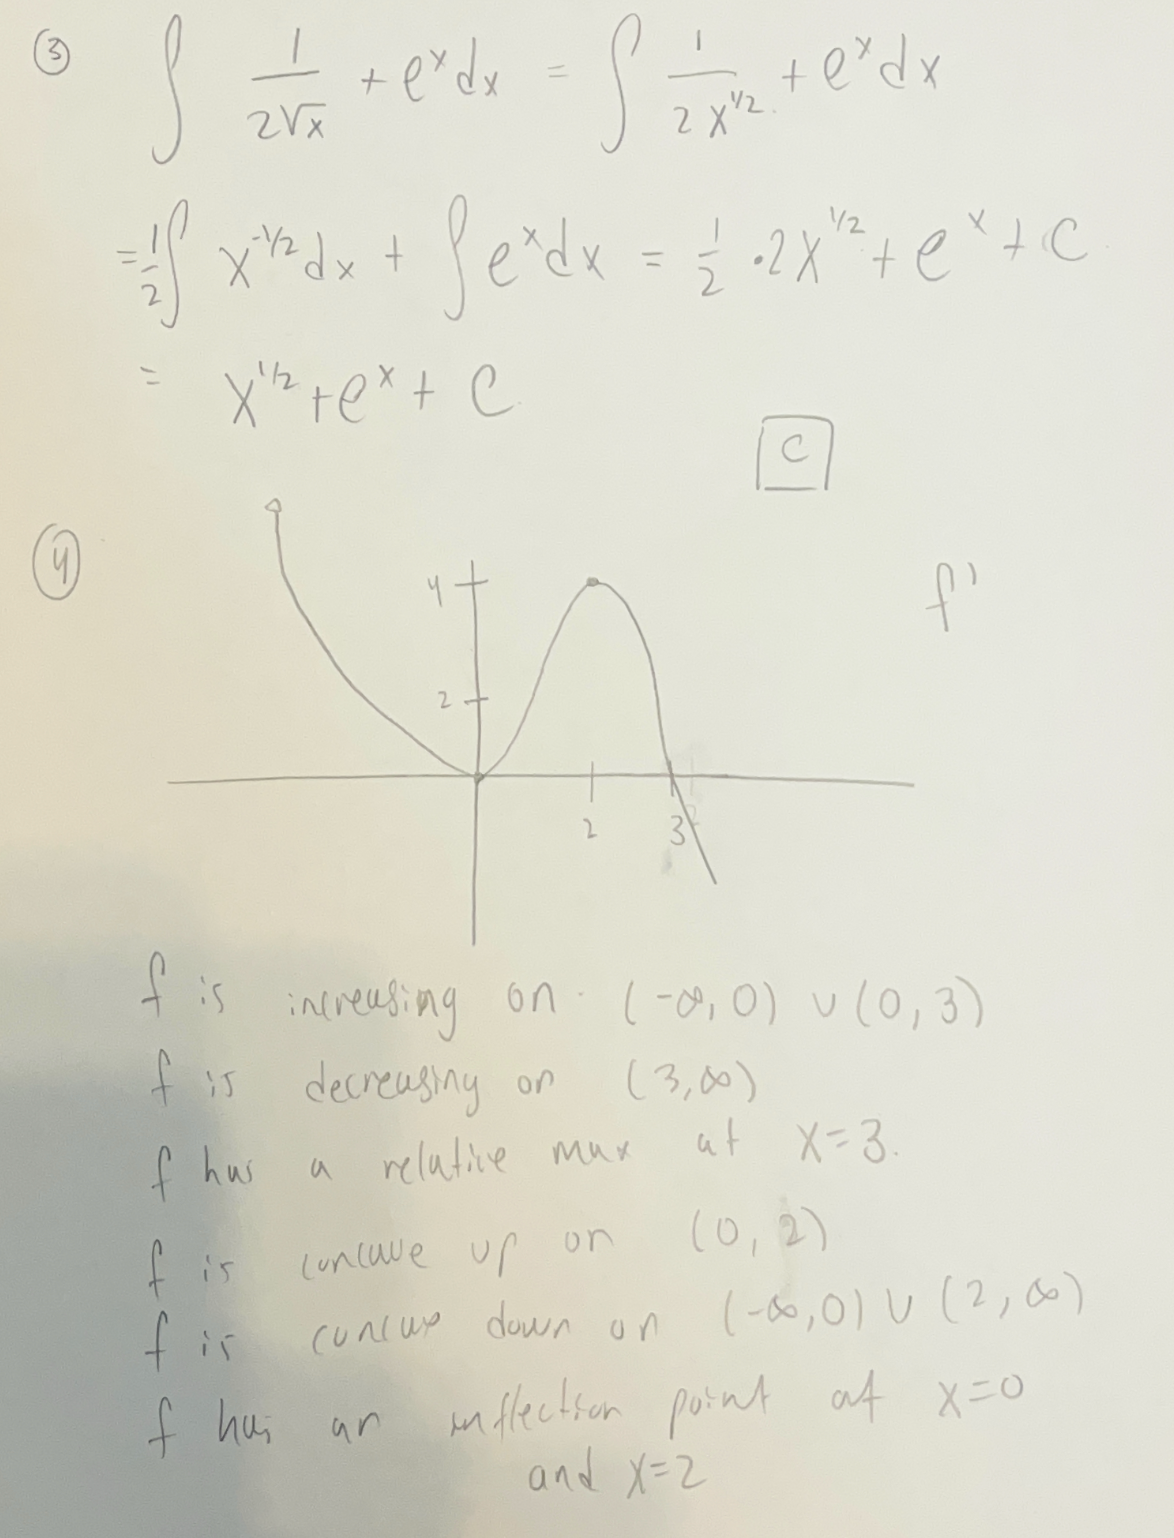 ③ ∫ 1/(2√x) + eˣ dx = ∫ 1/(2x^{1/2}) + eˣ dx
= 1/2 ∫ x^{-1/2} dx + ∫ eˣ dx = 1/2 · 2x^{1/2} + eˣ + C
= x^{1/2} + eˣ + C
C
④
4
f'
2
2
3
f is increasing on (-∞, 0) ∪ (0, 3)
f is decreasing on (3, ∞)
f has a relative max at x=3.
f is concave up on (0, 2)
f is concave down on (-∞, 0) ∪ (2, ∞)
f has an inflection point at x=0
and x=2